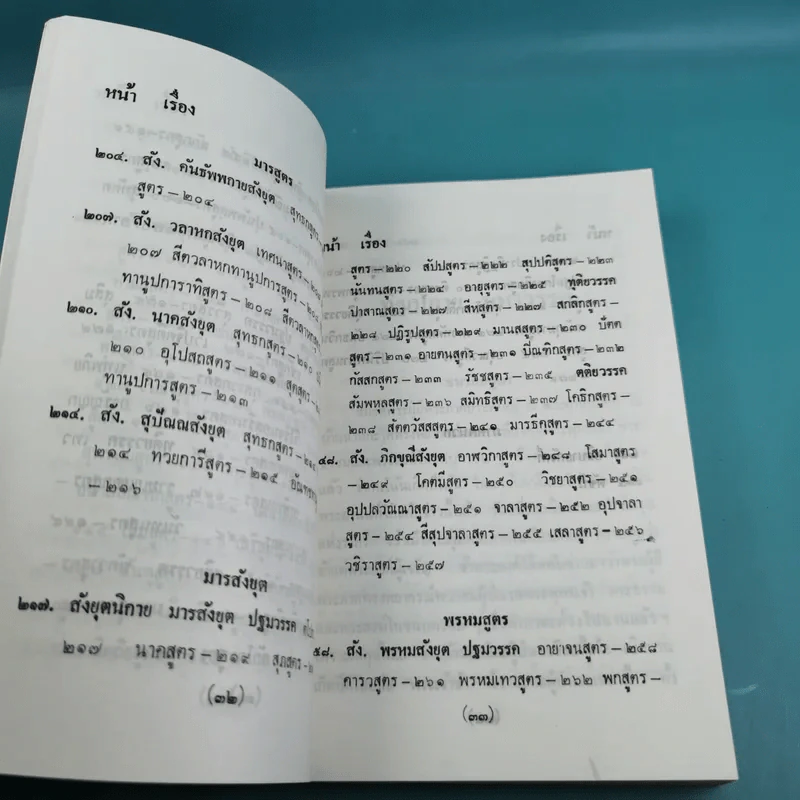 หน้า เรื่อง
มารสูตร
๒๐๔. สัง. คันธัพพกายสังยุต สุทธกสูตร
สูตร – ๒๐๔
๒๐๗. สัง. วลาหกสังยุต เทศนาสูตร –
๒๐๗ สีตวลาหกทานูปการสูตร –
ทานูปการาทิสูตร – ๒๐๘ สีตวลาหก
๒๑๐. สัง. นาคสังยุต สุทธกสูตร – ๒๑๐
๒๑๐ อุโปสถสูตร – ๒๑๑ สุตสูตร –
ทานูปการสูตร – ๒๑๓
๒๑๔. สัง. สุบัณณสังยุต สุทธกสูตร – ๒๑๔
๒๑๔ ทวยการีสูตร – ๒๑๕
– ๒๑๖
มารสังยุต
๒๑๗. สังยุตนิกาย มารสังยุต ปฐมวรรค
๒๑๗ นาคสูตร – ๒๑๙ สุภสูตร –
(๓๒)
หน้า เรื่อง
สูตร – ๒๒๐ สัปปสูตร – ๒๒๒ สุปปติสูตร – ๒๒๓
นันทนสูตร – ๒๒๔ อายุสูตร – ๒๒๕ ทุติยวรรค
ปาสาณสูตร – ๒๒๗ สีหสูตร – ๒๒๗ สกลิกสูตร –
๒๒๘ ปฏิรูปสูตร – ๒๒๙ มานสสูตร – ๒๓๐ ปัตต
สูตร – ๒๓๑ อายตนสูตร – ๒๓๑ ปิณฑิกสูตร – ๒๓๒
กัสสกสูตร – ๒๓๓ รัชชสูตร – ๒๓๕ ตติยวรรค
สัมพหุลสูตร – ๒๓๖ สมิทธิสูตร – ๒๓๗ โคธิกสูตร –
๒๓๘ สัตตวัสสสูตร – ๒๔๑ มารธีตุสูตร – ๒๔๔
๔๘. สัง. ภิกขุณีสังยุต อาฬวิกาสูตร – ๒๔๘ โสมาสูตร
– ๒๔๙ โคตมีสูตร – ๒๕๐ วิชยาสูตร – ๒๕๑
อุปปลวัณณาสูตร – ๒๕๑ จาลาสูตร – ๒๕๒ อุปจาลา
สูตร – ๒๕๔ สีสุปจาลาสูตร – ๒๕๕ เสลาสูตร – ๒๕๖
วชิราสูตร – ๒๕๗
พรหมสูตร
๕๘. สัง. พรหมสังยุต ปฐมวรรค อายาจนสูตร – ๒๕๘
คารวสูตร – ๒๖๑ พรหมเทวสูตร – ๒๖๒ พกสูตร –
(๓๓)